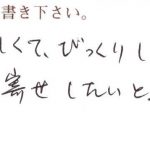 書き下さい。
しくて、びっくりし
寄せしたいと